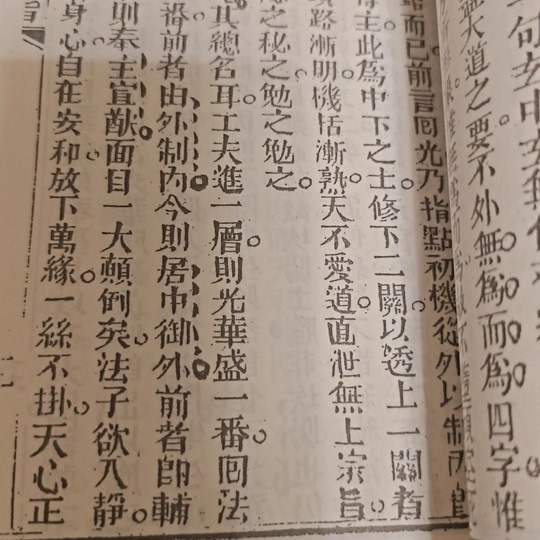 句玄中玄
大道之要不外無為而為四字惟
而已前言囘光乃指點初機從外以制內
主此為中下之士修下二關以透上一關者
路漸明機括漸熟天不愛道直泄無上宗旨
之秘之勉之勉之
其總名耳工夫進一層則光華盛一番囘法
番前者由外制內今則居中御外前者即輔
則奉主宣猷面目一大顛倒矣法子欲入靜
身心自在安和放下萬緣一絲不掛天心正